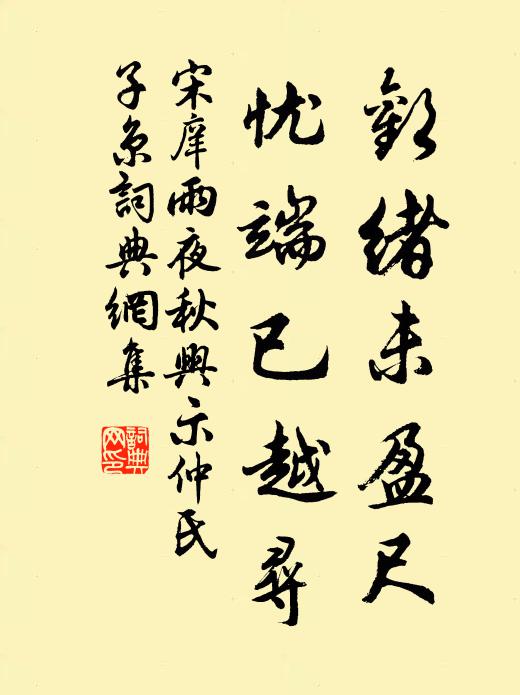 歡緒未盈尺
忧端已越尋
宋庠雨夜秋興示仲氏
子京詞典網集
詞典
网印